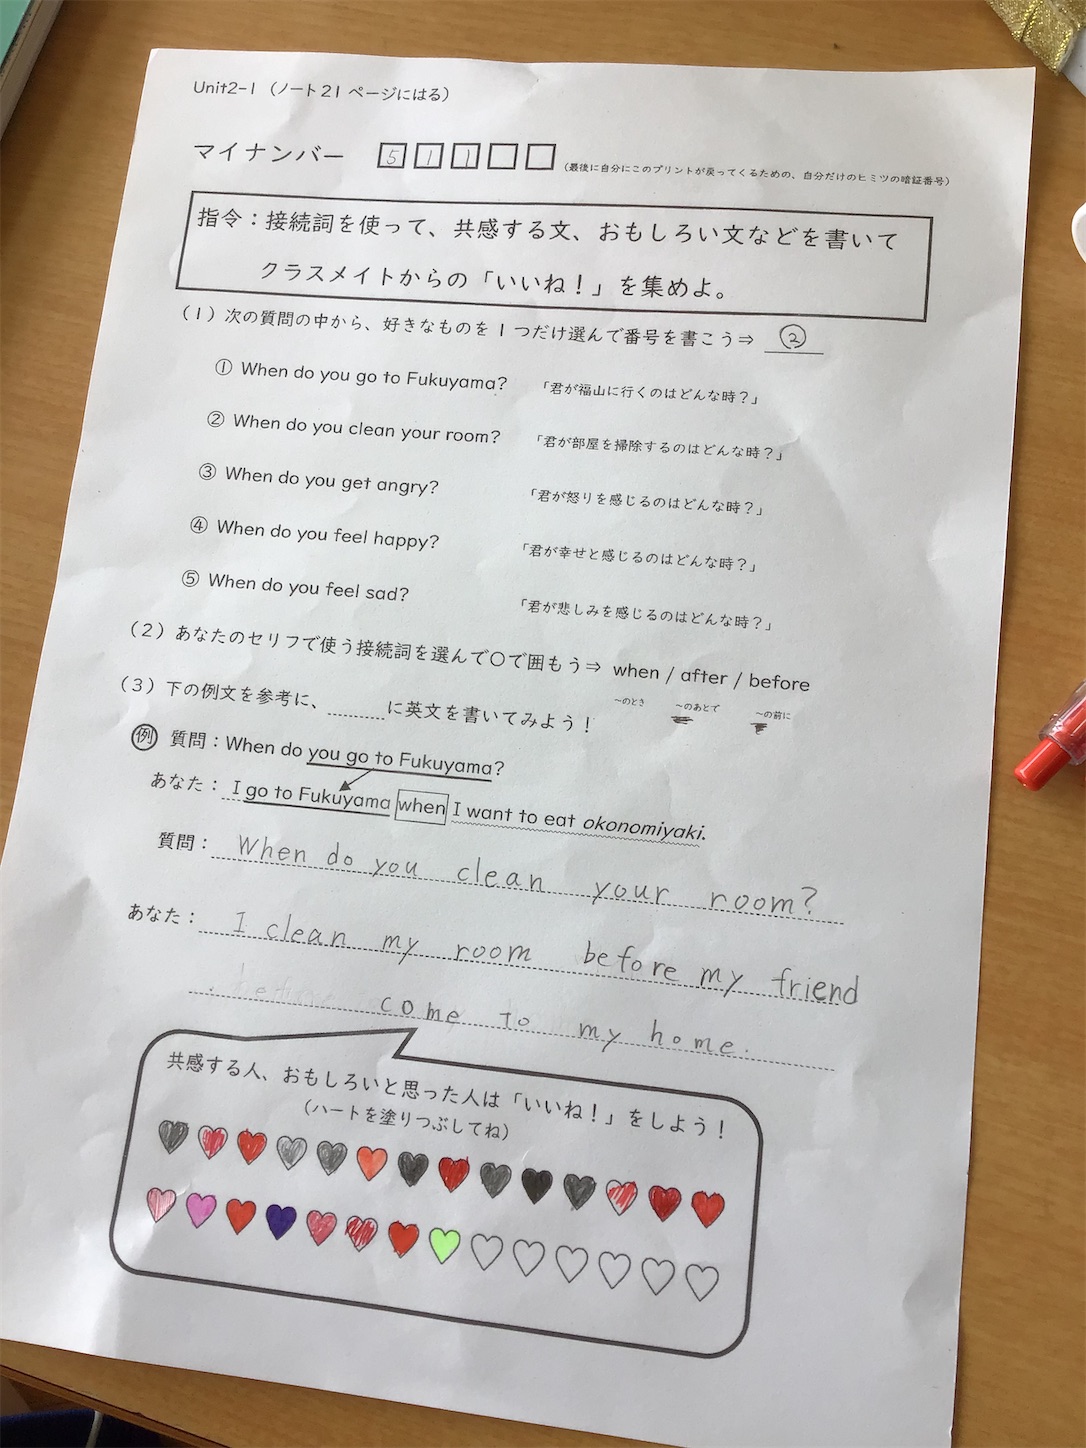 Unit2-1（ノート21ページにはる）
マイナンバー 5 1 1 （最後に自分にこのプリントが戻ってくるための、自分だけのヒミツの暗証番号）
指令：接続詞を使って、共感する文、おもしろい文などを書いて
クラスメイトからの「いいね！」を集めよ。
（1）次の質問の中から、好きなものを1つだけ選んで番号を書こう⇒ ②
① When do you go to Fukuyama? 「君が福山に行くのはどんな時？」
② When do you clean your room? 「君が部屋を掃除するのはどんな時？」
③ When do you get angry? 「君が怒りを感じるのはどんな時？」
④ When do you feel happy? 「君が幸せと感じるのはどんな時？」
⑤ When do you feel sad? 「君が悲しみを感じるのはどんな時？」
（2）あなたのセリフで使う接続詞を選んで○で囲もう⇒ when / after / before
～のとき ～のあとで ～の前に
（3）下の例文を参考に、________に英文を書いてみよう！
例 質問：When do you go to Fukuyama?
あなた： I go to Fukuyama when I want to eat okonomiyaki.
質問： When do you clean your room?
あなた： I clean my room before my friend
come to my home.
共感する人、おもしろいと思った人は「いいね！」をしよう！
（ハートを塗りつぶしてね）